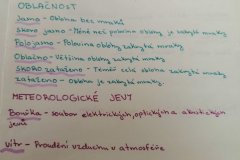 OBLAČNOST
Jasno - Obloha bez mraků
Skoro jasno - Méně než polovina oblohy je zakrytá mraky
Polojasno - Polovina oblohy zakrytá mraky
Oblačno - Většina oblohy zakrytá mraky
Skoro zataženo - Téměř celá obloha zakrytá mraky
zataženo - Obloha je zakrytá mraky
METEOROLOGICKÉ JEVY
Bouřka - soubor elektrických, optických a akustických
jevů
Vítr - Proudění vzduchu v atmosféře